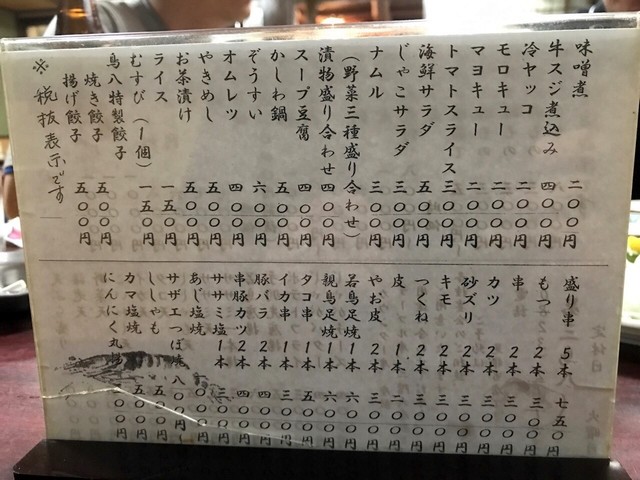 味噌煮 二〇〇円
牛スジ煮込み 四〇〇円
冷ヤッコ 二〇〇円
モロキュー 二〇〇円
マヨキュー 二〇〇円
トマトスライス 三〇〇円
海鮮サラダ 五〇〇円
じゃこサラダ 三〇〇円
ナムル 三〇〇円
(野菜三種盛り合わせ)
漬物盛り合わせ 四〇〇円
スープ豆腐 四〇〇円
かしわ鍋 五〇〇円
ぞうすい 六〇〇円
オムレツ 四〇〇円
やきめし 五〇〇円
お茶漬け 五〇〇円
ライス 一五〇円
むすび(1個) 一五〇円
鳥八特製餃子
焼き餃子 五〇〇円
揚げ餃子 五〇〇円
※税抜表示です
盛り串 5本 七五〇円
もつ 2本 三〇〇円
串 2本 三〇〇円
カツ 2本 三〇〇円
砂ズリ 2本 三〇〇円
キモ 2本 三〇〇円
つくね 2本 三〇〇円
皮 1本 二〇〇円
やお皮 2本 三〇〇円
若鳥足焼 1本 六〇〇円
親鳥足焼 1本 六〇〇円
タコ串 1本 五〇〇円
イカ串 1本 三〇〇円
豚バラ 2本 四〇〇円
串豚カツ 2本 四〇〇円
ササミ塩 1本 三〇〇円
あじ塩焼 〇〇円
サザエつぼ焼 八〇〇円
ししゃも 五〇〇円
カマ塩焼 〇〇円
にんにく丸 〇〇円